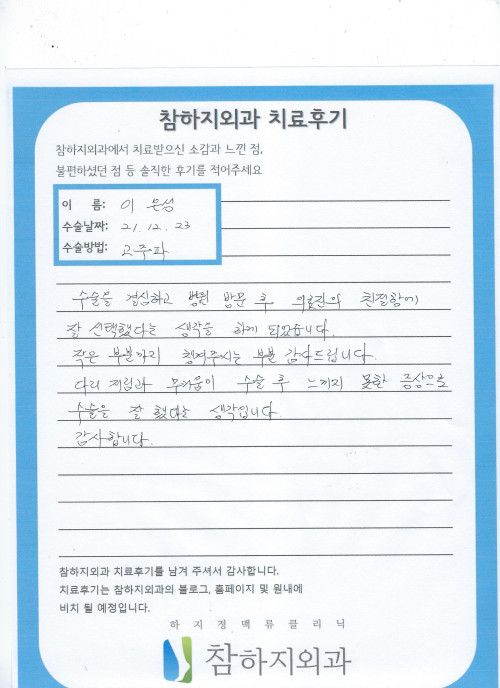 참하지외과 치료후기
참하지외과에서 치료받으신 소감과 느낀 점,
불편하셨던 점 등 솔직한 후기를 적어주세요
이 름: 이 은성
수술날짜: 21. 12. 23
수술방법: 고주파
수술을 결심하고 병원 방문 후 의료진의 친절함에
잘 선택했다는 생각을 하게 되었습니다.
작은 부분까지 챙겨주시는 부분 감사드립니다.
다리 저림과 무거움이 수술 후 느끼지 못한 증상으로
수술을 잘 했다는 생각입니다.
감사합니다.
참하지외과 치료후기를 남겨 주셔서 감사합니다.
치료후기는 참하지외과의 블로그, 홈페이지 및 원내에
비치 될 예정입니다.
하지정맥류클리닉
참하지외과